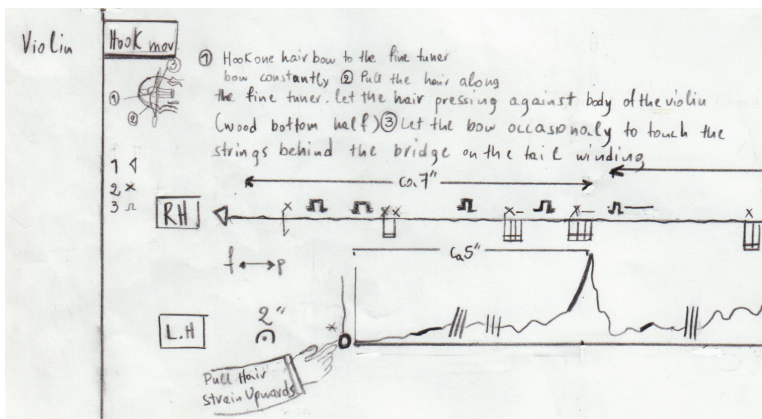 Violin
Hook mov
① Hook one hair bow to the fine tuner
bow constantly ② Pull the hair along
the fine tuner. let the hair pressing against body of the violin
(wood bottom half) ③ Let the bow occasionaly to touch the
strings behind the bridge on the tail winding
③
①
②
1
2 x
3
ca.7"
RH
f ↔ p
ca5"
L.H
2"
Pull Hair
strain Upwards